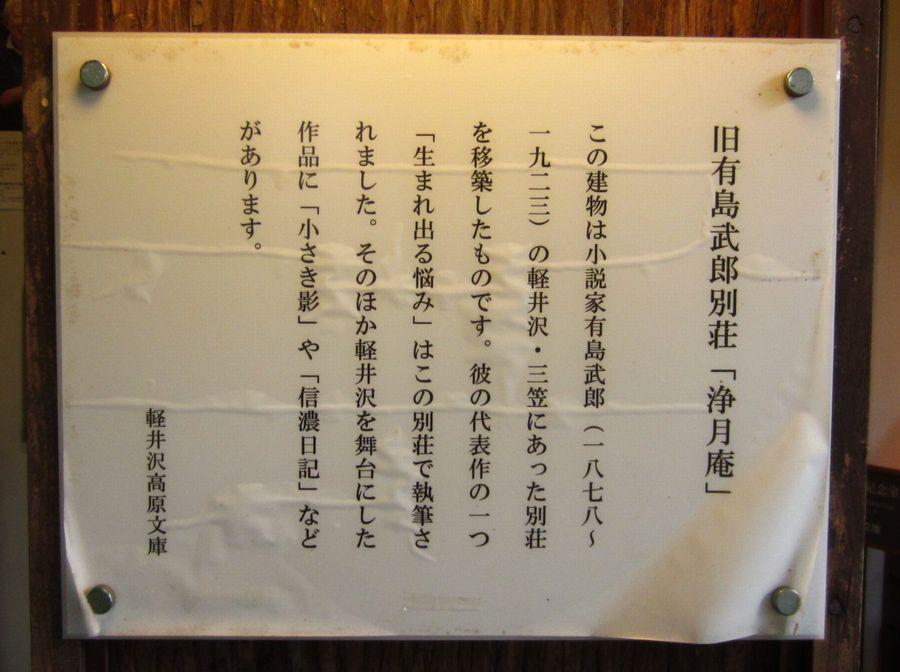 旧有島武郎別荘「浄月庵」
この建物は小説家有島武郎（一八七八～
一九二三）の軽井沢・三笠にあった別荘
を移築したものです。彼の代表作の一つ
「生まれ出る悩み」はこの別荘で執筆さ
れました。そのほか軽井沢を舞台にした
作品に「小さき影」や「信濃日記」など
があります。
軽井沢高原文庫